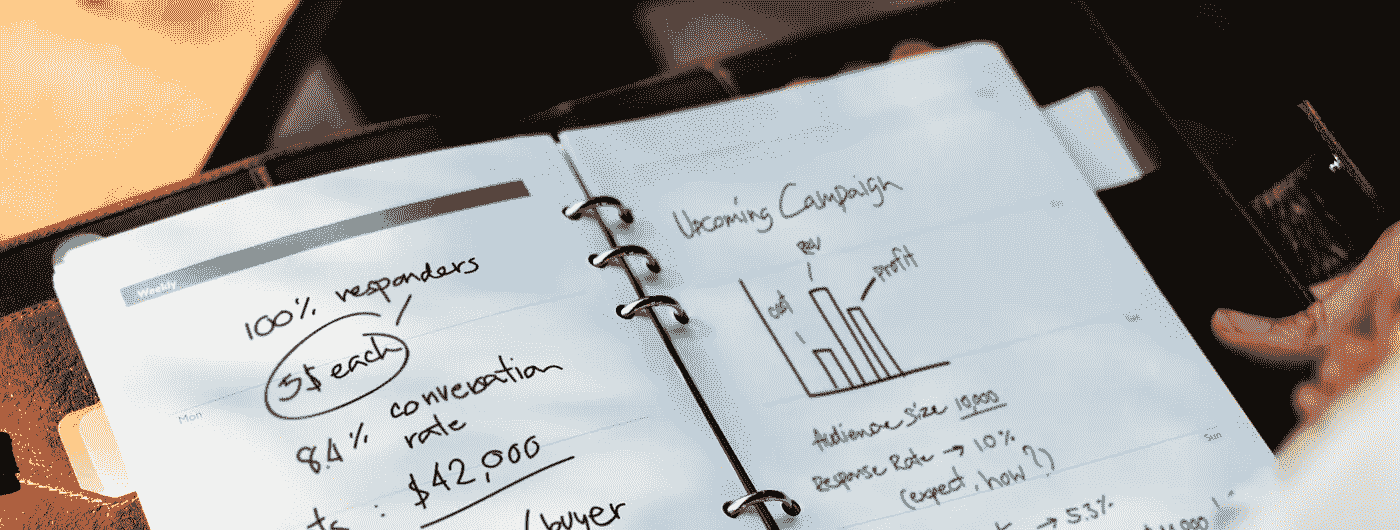 Weekly
100% responders
5$ each
Mon
8.4% conversation
rate
$42,000
:
/buyer
Upcoming Campaign
Rev
Profit
Cost
Audience Size 10,000
Response Rate → 10%
(expect, how?)
Sun
→ 5.3%